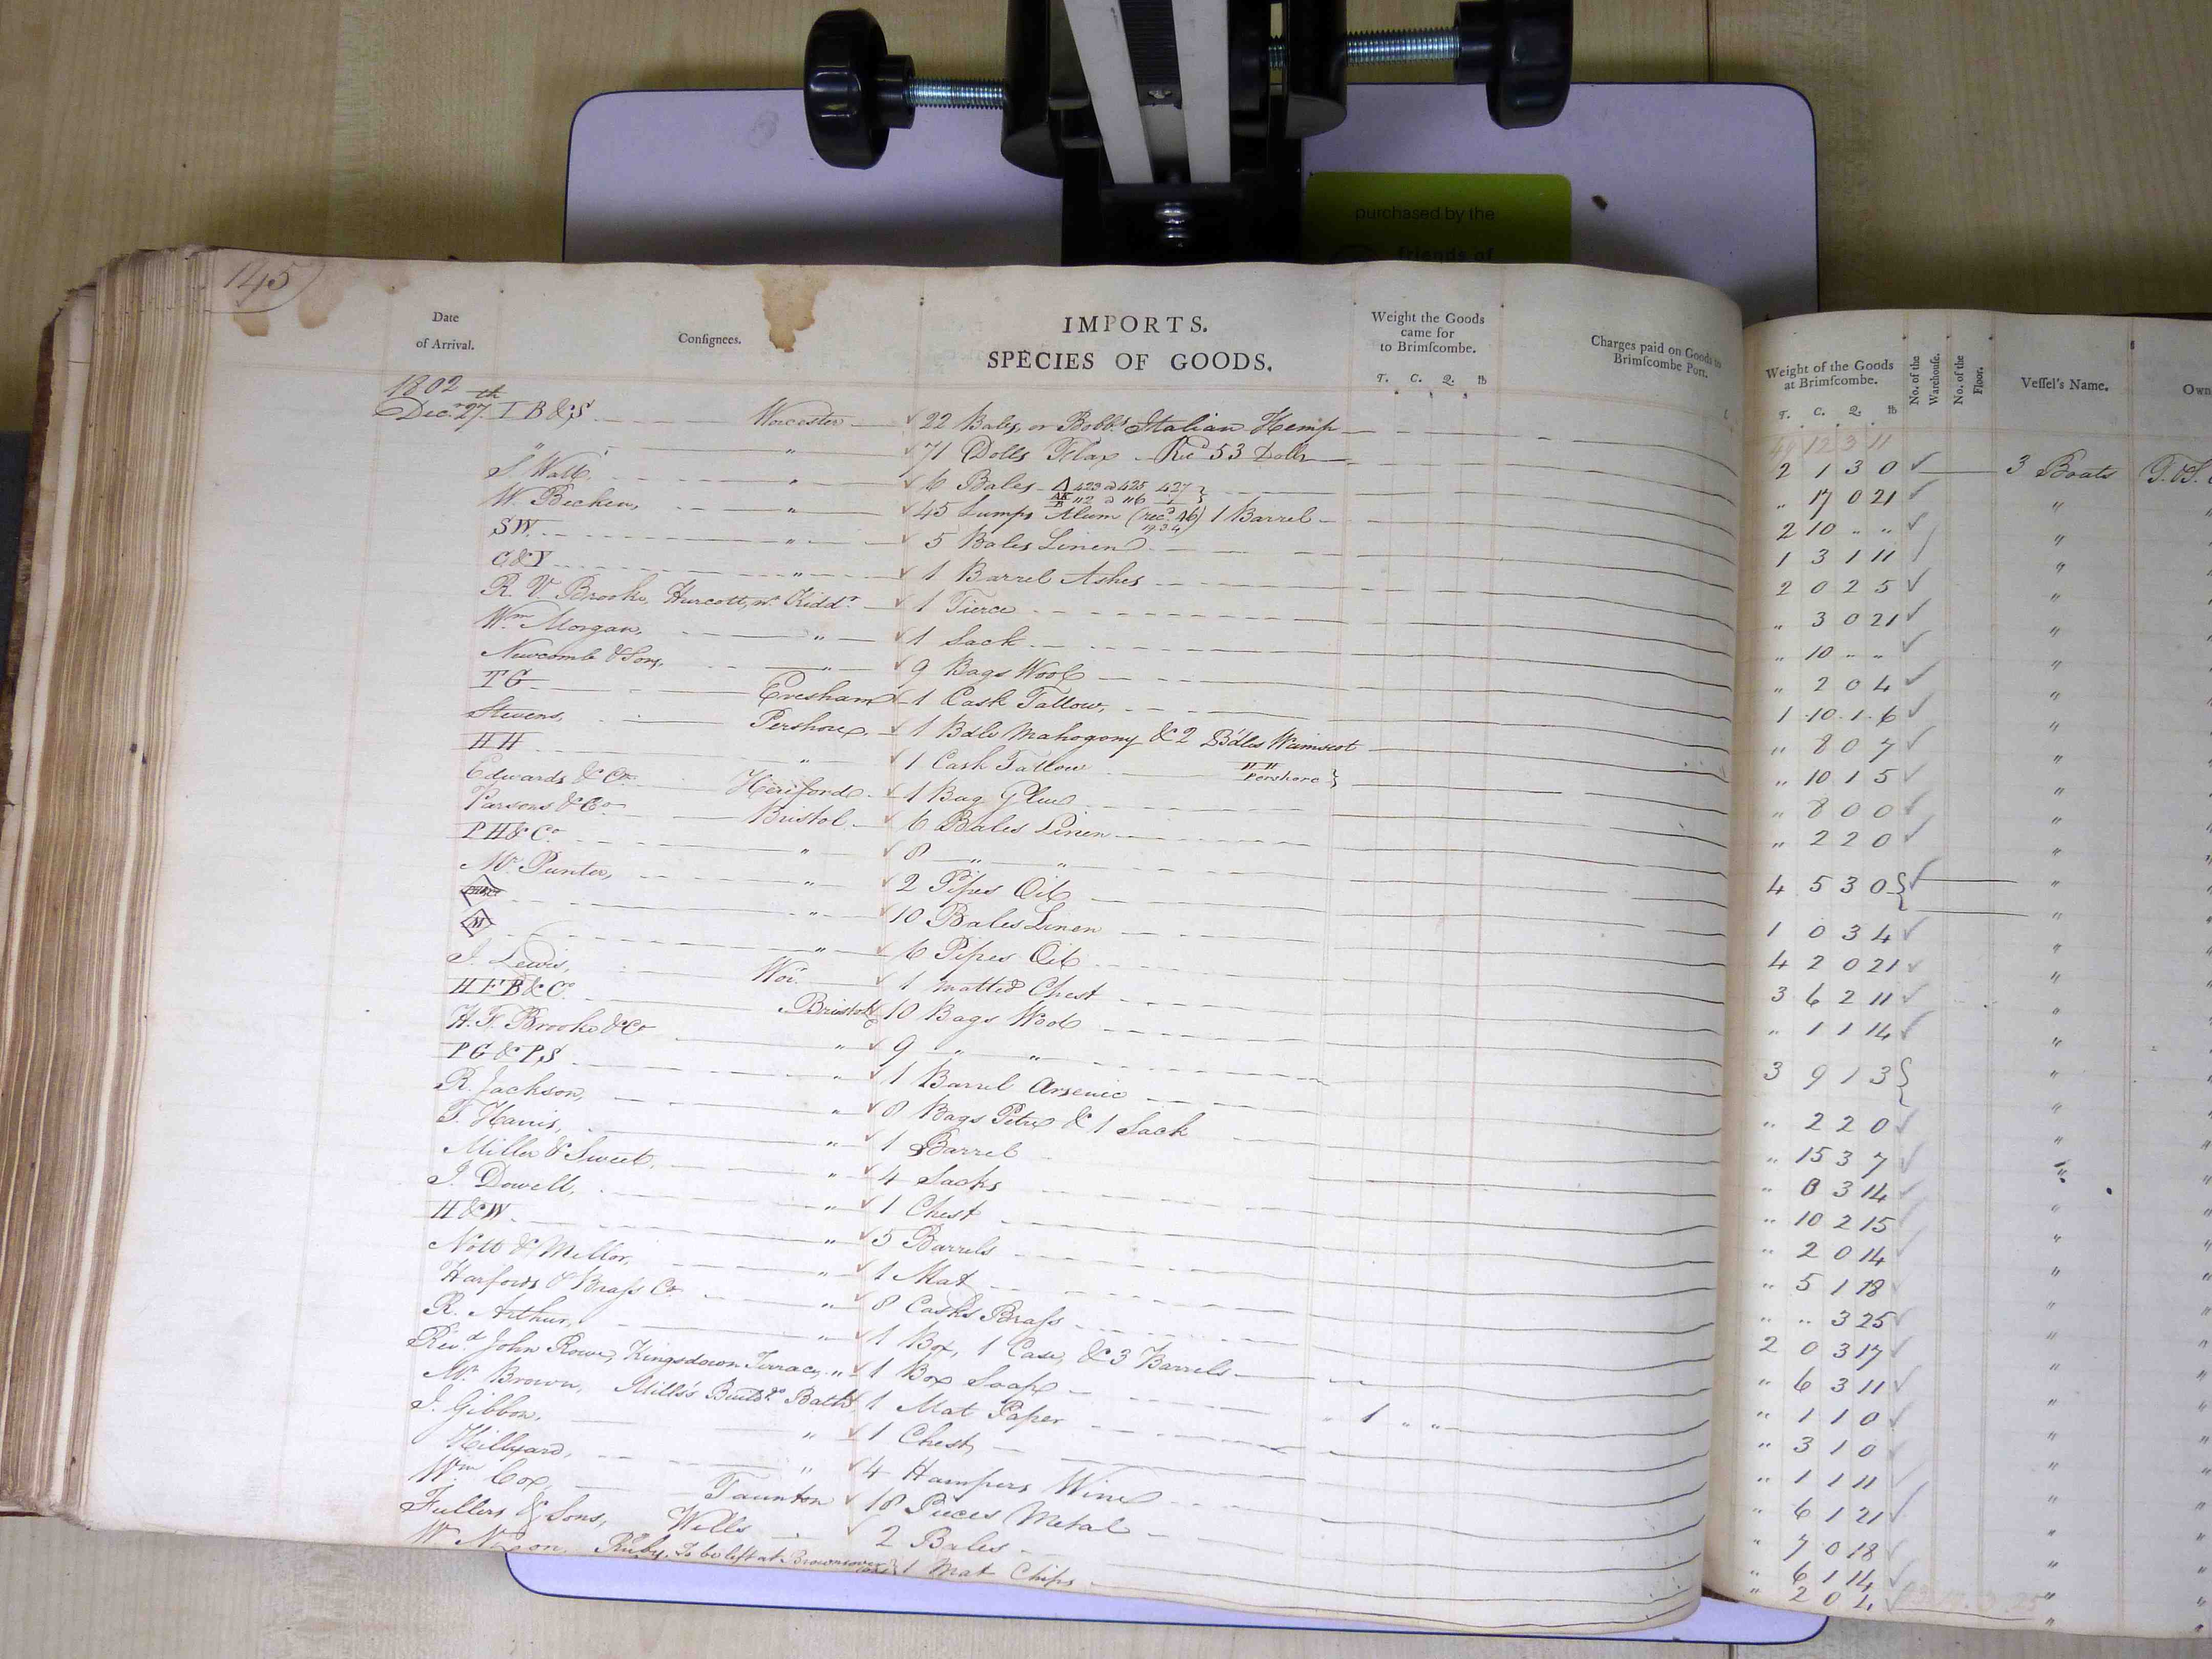 purchased by the
friends of
145
Date of Arrival. Conſignees. IMPORTS. SPECIES OF GOODS. Weight the Goods came for to Brimſcombe. T. C. Q. lb Charges paid on Goods to Brimſcombe Port. Weight of the Goods at Brimſcombe. T. C. Q. lb No. of the Warehouſe. No. of the Floor. Veſſel's Name. Own
1802
44 12 3 11
Decr 27th I B & S Worcester 22 Bales, or Bobbs Italian Hemp 2 1 3 0 3 Boats
" " 71 Dolls Flax Recd 53 Dolls " 17 0 21 "
S Wall, " 6 Bales 423 a 425 427 2 10 " " "
W. Beeken, " 45 Lumps Alum (recd 46) 1 Barrel 1 3 1 11 "
SW " 5 Bales Linen 2 0 2 5 "
G&Y " 1 Barrel Ashes " 3 0 21 "
R. V. Brooke, Hurcott, nr Kiddr 1 Tierce " 10 " " "
Wm Morgan, " 1 Sack " 2 0 4 "
Newcomb & Sons, " 9 Bags Wool 1 10 1 6 "
TG Evesham 1 Cask Tallow, " 8 0 7 "
Stevens, Pershore, 1 Bdle Mahogony & 2 Bdles Wainscot " 10 1 5 "
HH " 1 Cask Tallow HH Pershore " 8 0 0 "
Edwards & Co. Hereford 1 Bag Glue " 2 2 0 "
Parsons & Co. Bristol 6 Bales Linen 4 5 3 0 "
PH&Co " 8 " " "
Mr Punter, " 2 Pipes Oil 1 0 3 4 "
" 10 Bales Linen 4 2 0 21 "
M " 6 Pipes Oil 3 6 2 11 "
J. Lewis, Wor. 1 matted Chest " 1 1 14 "
HFB&Co Bristol 10 Bags Wool 3 9 1 3 "
H. F. Brooke & Co " 9 " " "
PG & PS " 1 Barrel Arsenic " 2 2 0 "
R. Jackson, " 8 Bags Petre & 1 Sack " 15 3 7 "
T. Harris, " 1 Barrel " 8 3 14 "
Miller & Sweet, " 4 Sacks " 10 2 15 "
J. Dowell, " 1 Chest " 2 0 14 "
H&W " 5 Barrels " 5 1 18 "
Nott & Mellor, " 1 Mat " " 3 25 "
Harfords & Braſs Co. " 8 Casks Braſs 2 0 3 17 "
R. Arthur, " 1 Box, 1 Case, & 3 Barrels " 6 3 11 "
Revd John Rowe, Kingsdown Terrace, " 1 Box Soap " 1 1 0 "
Mr Brown, Mills's Buildgs Bath 1 Mat Paper " 1 " " " 3 1 0 "
J. Gibbon, " 1 Chest " 1 1 11 "
Hillyard, " 4 Hampers Wine " 6 1 21 "
Wm Cox, Taunton 18 Pieces Metal " 7 0 18 "
Fullers & Sons, Wells 2 Bales " 6 1 14 "
Ruby, To be left at 1 Mat Chips " 2 0 4 "